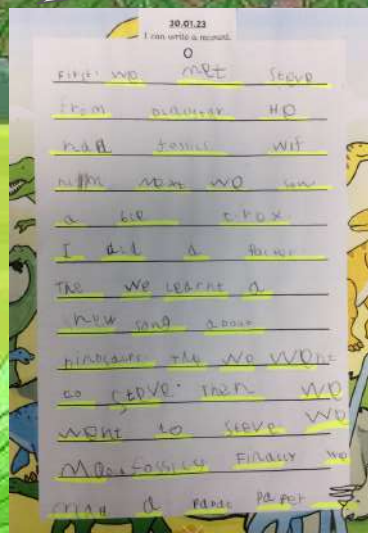 30.01.23
I can write a recount.
O
First we met Steve
from He
had fossils wit
him Next we saw
a big t rex
I did a
The we learnt a
new song about
dinosaurs The we went
to steve. Then we
went to steve we
fossils Finally we
a panda paper